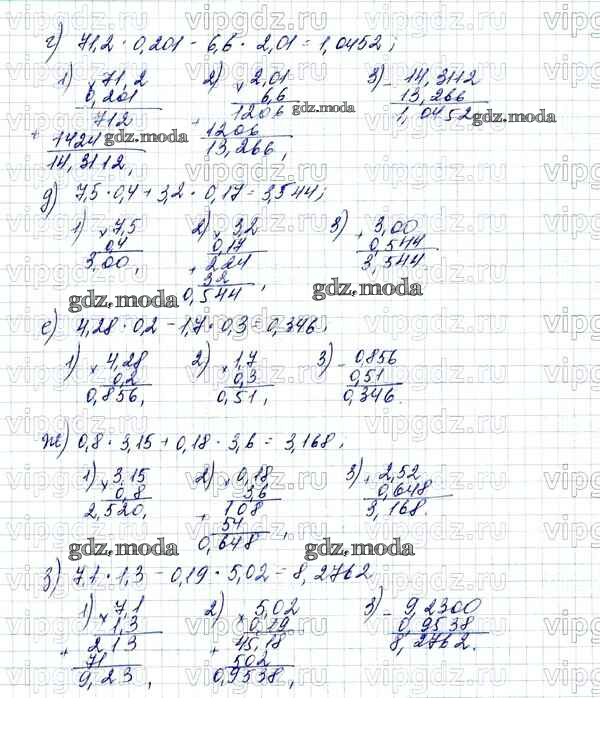 г) 71,2 · 0,201 - 6,6 · 2,01 = 1,0452;
1) × 71,2 2) × 2,01 3) - 14,3112
0,201 6,6 13,266
712 1206 1,0452
+ 1424 + 1206
14,3112, 13,266,
gdz.moda gdz.moda gdz.moda
д) 7,5 · 0,4 + 3,2 · 0,17 = 3,544;
1) × 7,5 2) × 3,2 3) + 3,00
0,4 0,17 0,544
3,00, + 224 3,544.
32
0,544,
gdz.moda gdz.moda
е) 4,28 · 0,2 - 1,7 · 0,3 = 0,346,
1) × 4,28 2) × 1,7 3) - 0,856
0,2 0,3 0,51
0,856, 0,51, 0,346.
ж) 0,8 · 3,15 + 0,18 · 3,6 = 3,168,
1) × 3,15 2) × 0,18 3) + 2,52
0,8 3,6 0,648
2,520, + 108 3,168.
54
0,648,
gdz.moda gdz.moda
з) 7,1 · 1,3 - 0,19 · 5,02 = 8,2762
1) × 7,1 2) × 5,02 3) - 9,2300
1,3 0,19 0,9538
+ 213 + 45,18 8,2762.
71 502
9,23, 0,9538,
vipgdz.ru